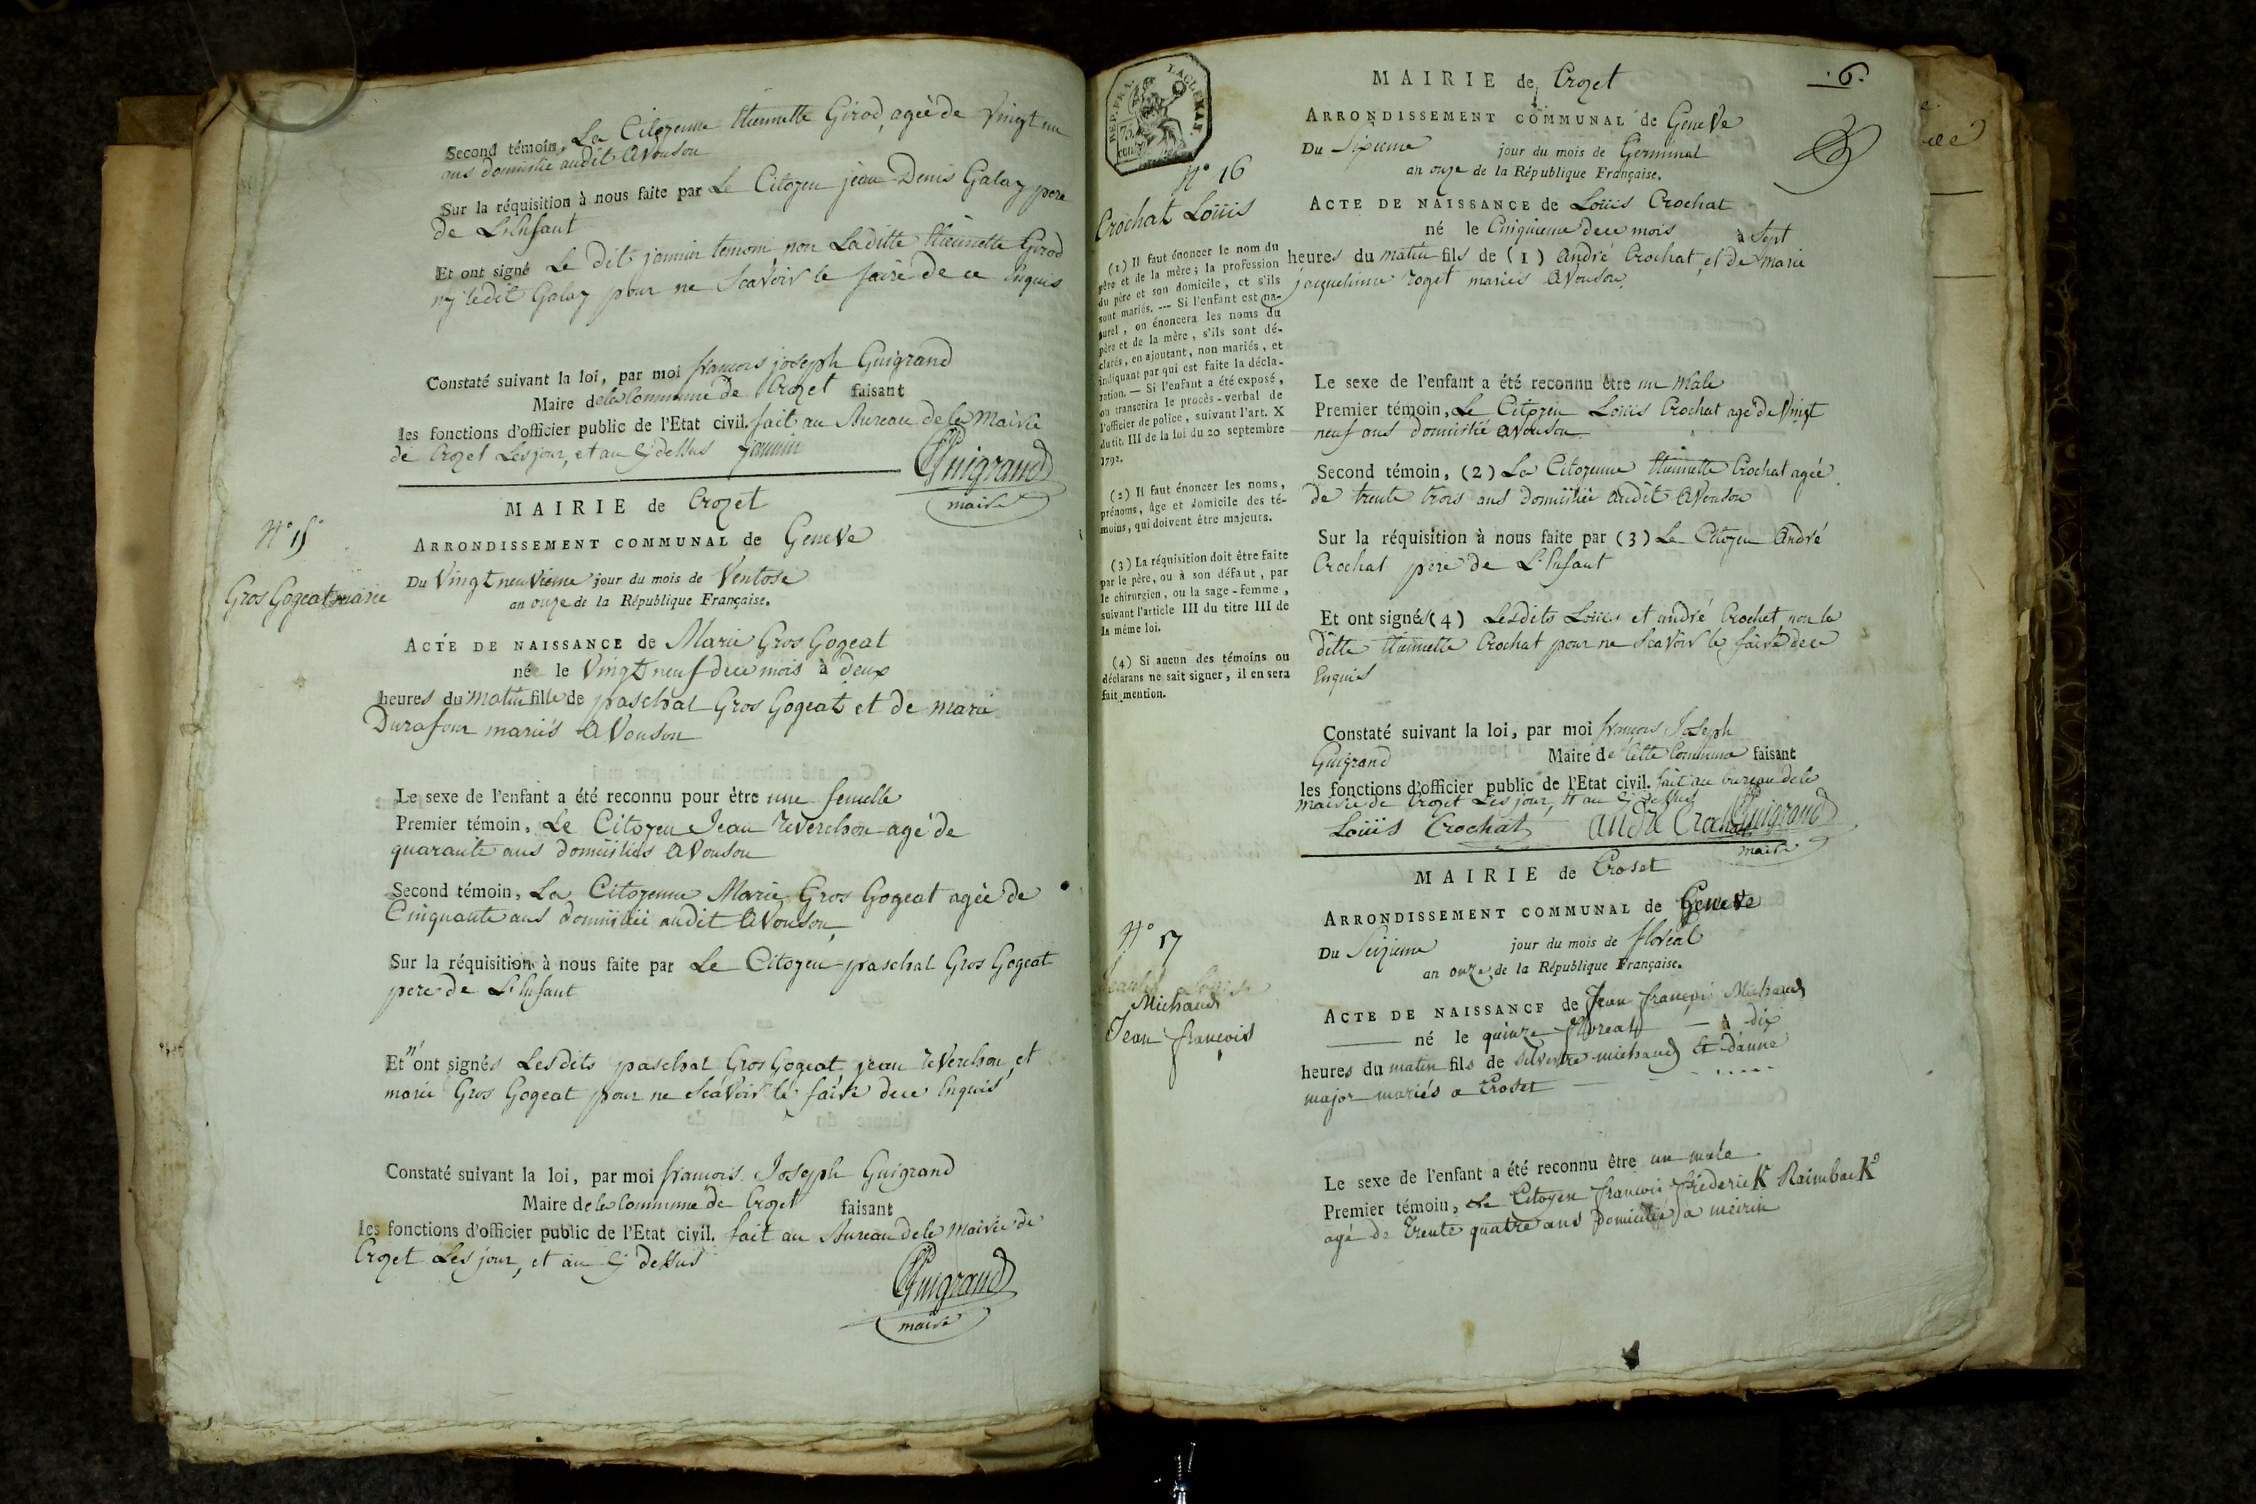 Second témoin, La Citoyenne Etiennette Girod, agée de Vingt un
ans domiciliée audit avouson
Sur la réquisition à nous faite par Le Citoyen jean Denis Galay pere
de L'Enfant
Et ont signé Le dit jannin temoin non Laditte Etiennette Girod
ny ledit Galay pour ne Scavoir le faire de ce Enquis
Constaté suivant la loi, par moi francois joseph Guigrand
Maire de la Commune de Crozet faisant
les fonctions d'officier public de l'Etat civil. fait au Bureau de la Mairie
de Crozet Les jour, et an Cy dessus Jannin
Guigrand
maire
N° 15
Gros Gogeat marie
MAIRIE de Crozet
ARRONDISSEMENT COMMUNAL de GeneVe
Du Vingt neuVieme jour du mois de Ventose
an onze de la République Française.
ACTE DE NAISSANCE de Marie Gros Gogeat
née le Vingt neuf de ce mois à deux
heures du matin fille de paschal Gros Gogeat et de marie
Durafour mariés a Vouson
Le sexe de l'enfant a été reconnu pour être une femelle
Premier témoin, Le Citoyen Jean reVerchon agé de
quarante ans domiciliés a Vouson
Second témoin, La Citoyenne Marie Gros Gogeat agée de
Cinquante ans domiciliée audit aVouson
Sur la réquisition à nous faite par Le Citoyen paschal Gros Gogeat
pere de L'Enfant
Et n'ont signés Lesdits paschal Gros Gogeat, jean reVerchon, et
marie Gros Gogeat pour ne ScaVoir le faire de ce Enquis
Constaté suivant la loi, par moi francois Joseph Guigrand
Maire de la Commune de Crozet faisant
les fonctions d'officier public de l'Etat civil. fait au Bureau de la Mairie de
Crozet Les jour, et an Cy dessus
Guigrand
maire
REP. FRA.
75
cent.
6.
N° 16
Crochat Loüis
(1) Il faut énoncer le nom du
père et de la mère; la profession
du père et son domicile, et s'ils
sont mariés. --- Si l'enfant est na-
turel, on énoncera les noms du
père et de la mère, s'ils sont dé-
clarés, en ajoutant, non mariés, et
indiquant par qui est faite la décla-
ration. — Si l'enfant a été exposé,
on transcrira le procès-verbal de
l'officier de police, suivant l'art. X
du tit. III de la loi du 20 septembre
1792.
(2) Il faut énoncer les noms,
prénoms, âge et domicile des té-
moins, qui doivent être majeurs.
(3) La réquisition doit être faite
par le père, ou à son défaut, par
le chirurgien, ou la sage-femme,
suivant l'article III du titre III de
la même loi.
(4) Si aucun des témoins ou
déclarans ne sait signer, il en sera
fait mention.
MAIRIE de Crozet
ARRONDISSEMENT COMMUNAL de GeneVe
Du Sixieme jour du mois de Germinal
an onze de la République Française.
ACTE DE NAISSANCE de Loüis Crochat
né le Cinquieme de ce mois à Sept
heures du matin fils de (1) andré Crochat, et de marie
jacquelinne roget mariés aVouson
Le sexe de l'enfant a été reconnu être un Male
Premier témoin, Le Citoyen Loüis Crochat agé de Vingt
neuf ans domicilié aVouson
Second témoin, (2) La Citoyenne Etiennette Crochat agée
de trente trois ans domiciliée audit aVouson
Sur la réquisition à nous faite par (3) Le Citoyen andré
Crochat pere de L'Enfant
Et ont signés (4) Lesdits Loüis et andré Crochat, non la
ditte Etiennette Crochat pour ne ScaVoir le faire de ce
Enquis
Constaté suivant la loi, par moi françois Joseph
Guigrand Maire de Cette Commune faisant
les fonctions d'officier public de l'Etat civil. fait au bureau de la
mairie de Crozet Les jour, et an Cy dessus
Loüis Crochat andre Crochat Guigrand
maire
N° 17
Michaud
Jean françois
MAIRIE de Croset
ARRONDISSEMENT COMMUNAL de GeneVe
Du Seizieme jour du mois de floréal
an onze de la République Française.
ACTE DE NAISSANCE de Jean françois Michaud
né le quinze floreal — à dix
heures du matin fils de silvestre michaud Et d'anne
major mariés a Croset
Le sexe de l'enfant a été reconnu être un male
Premier témoin, Le Citoyen francois frédericK RaimbacK
agé de Trente quatre ans Domicilié a meirin